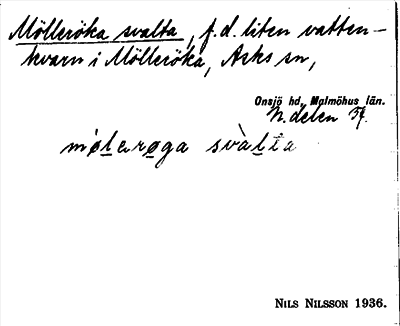 Mölleröka svalta, f.d. liten vatten-
kvarn i Mölleröka, Asks sn,
Onsjö hd, Malmöhus län.
N. delen
mø̀lerøga svàlta
NILS NILSSON 1936.